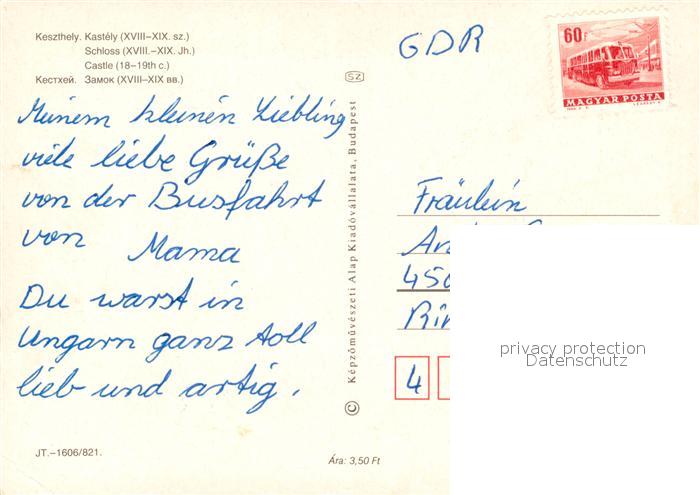 Keszthely. Kastély (XVIII–XIX. sz.)
Schloss (XVIII.–XIX. Jh.)
Castle (18–19th c.)
Кестхей. Замок (XVIII–XIX вв.)
Meinem kleinen Liebling
viele liebe Grüße
von der Busfahrt
von Mama
Du warst in
Ungarn ganz toll
lieb und artig.
JT.–1606/821.
Ára: 3,50 Ft
SZ
© Képzőművészeti Alap Kiadóvállalata, Budapest
GDR
60f
MAGYAR POSTA
Fräulein
4
privacy protection
Datenschutz